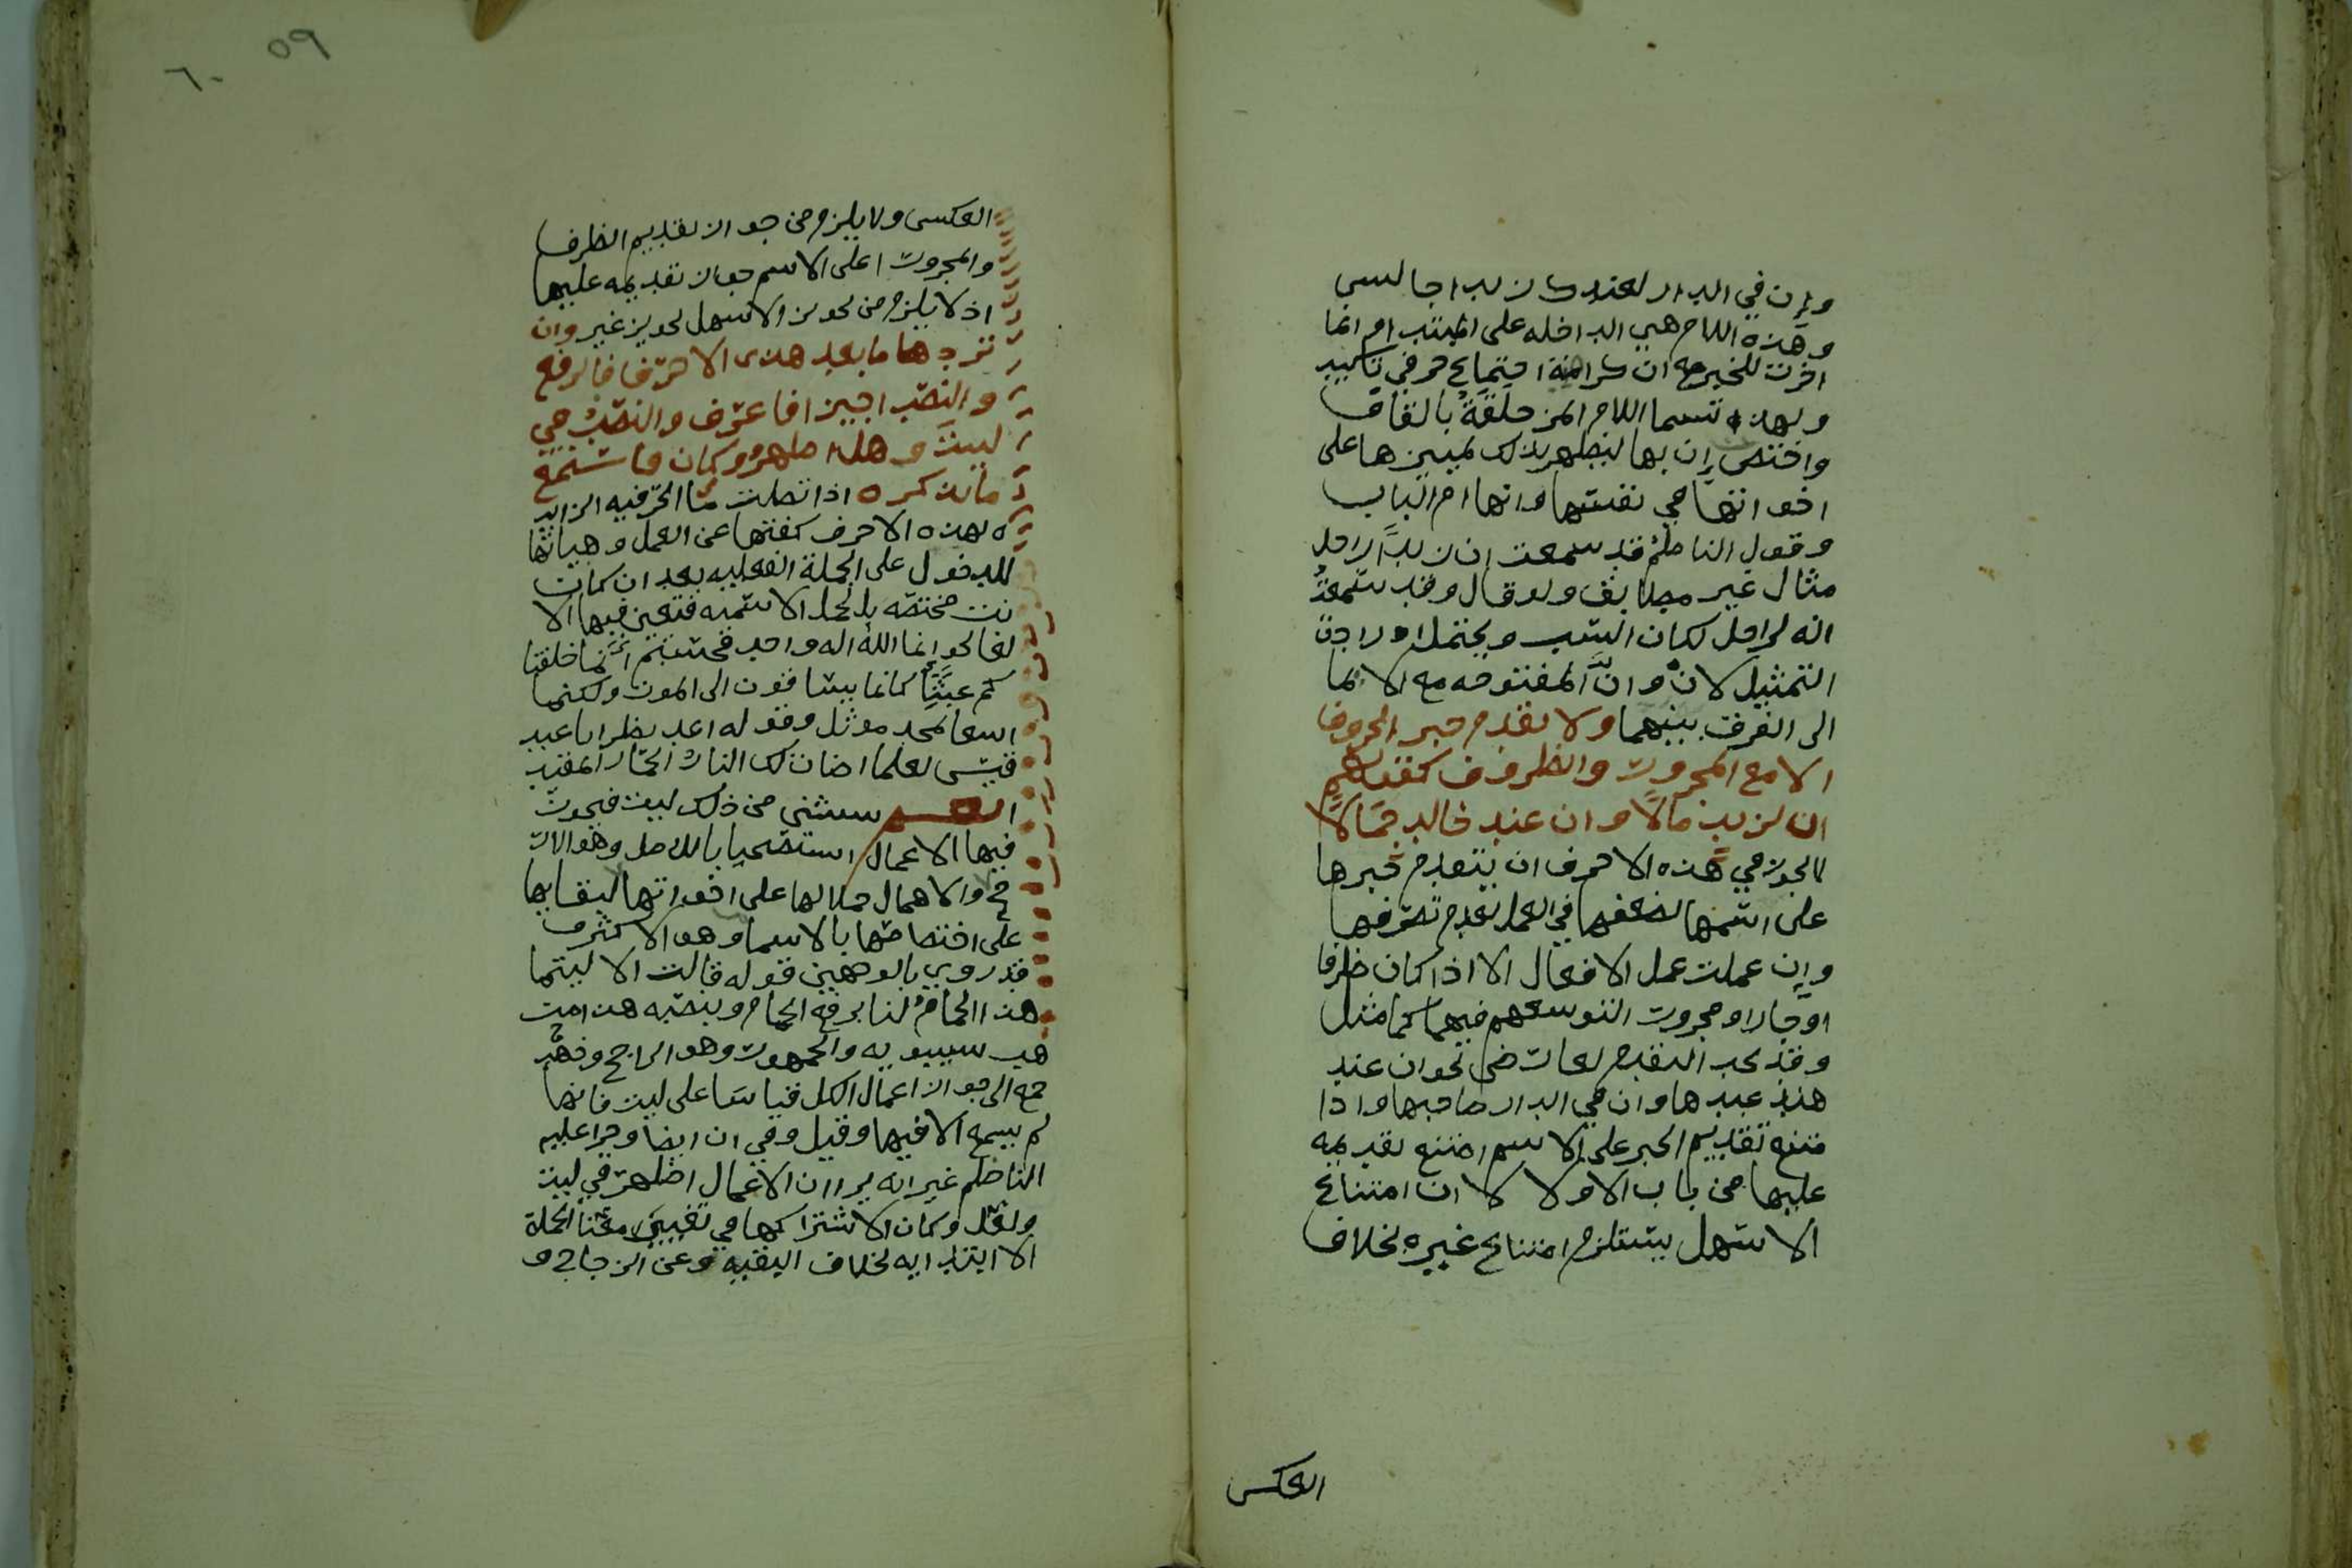 وإن في الدار لعندك زيدا جالس
وهذه اللام هي الداخله على المبتدا وانما
اخرت للخبر مع ان كراهة اجتماع حرفي تاكيد
ولهذا تسما اللام المزحلقة بالقاف
واختص إن بها ليظهر بذلك تمييزها على
اخواتها في نفسها وانها ام الباب
وقول الناظم قد سمعت ان زيدًا راحل
مثال غير مطابق ولو قال وقد سمعتُ
انه لراحل لكان انسب ويحتمل اوراجن
التمثيل لان وانَّ المفتوحه مع الايما
الى الفرق بينهما ولا تقدم خبر الحروف
الا مع المجرور والظروف كقولهم
ان لزيد مالًا وان عند خالد جمالًا
لا يجوز في هذه الاحرف ان يتقدم خبرها
على اسمها لضعفها في العمل بعدم تصرفها
وإن عملت عمل الافعال الا اذا كان ظرفا
او جارا ومجرور التوسعهم فيهما كما مثل
وقد يجب التقدم لعارض نحو ان عند
هند عبدها وان في الدار صاحبها واذا
متنع تقديم الخبر على الاسم امتنع تقديمه
عليها من باب الاولا لان امتناع
الاسهل يستلزم امتناع غيره بخلاف
العكس
٥٩ ٦٠
العكس ولا يلزم من جواز تقديم الظرف
والمجرور اعلى الاسم جواز تقديمه عليها
اذ لا يلزم من تجويز الاسهل تجويز غير وان
تزد ما بعد هذى الاحرف فالرفع
والنصب اجيز افاعرف والنصب في
ليت وهل اظهر وكان فاستمع
ما يذكره اذا اتصلت مَا الحرفيه الزايد
ه بهذه الاحرف كفتها عن العمل وهياتها
للدخول على الجملة الفعليه بعد ان كانت
نت مختصه بالجمل الاسميه فتعين فيها الا
لغا نحو إنما الله اله واحد فحسبتم انَّما خلقنا
كم عبثًا كانما يساقون الى الموت ولكنما
اسعا لمجد موثل وقوله اعد نظرا يا عبد
قيس لعلما اضات لك النار الحمار المقيد
يستثنى من ذلك ليت فيجوز
فيها الاعمال استصحابا للاصل وهو الار
جح والاهمال حملا لها على اخواتها لبقايها
على اختصاصها بالاسما وهو الاكثر و
قد روي بالوجهين قوله قالت الا ليتما
هذا الحمامُ لنا برفع الحمام وبنصبه هذا مذ
هب سيبويه والجمهور وهو الراجح وذهب
جمع الى جواز اعمال الكل قياسا على ليت فانها
لم يسمع الا فيها وقيل وفي ان ايضا وجرا عليه
الناظم غير انه يرا ان الاعمال اظهر في ليت
ولعل وكان لاشتراكها في تغيير معنا الجملة
الابتدايه بخلاف البقيه وعن الزجاج و